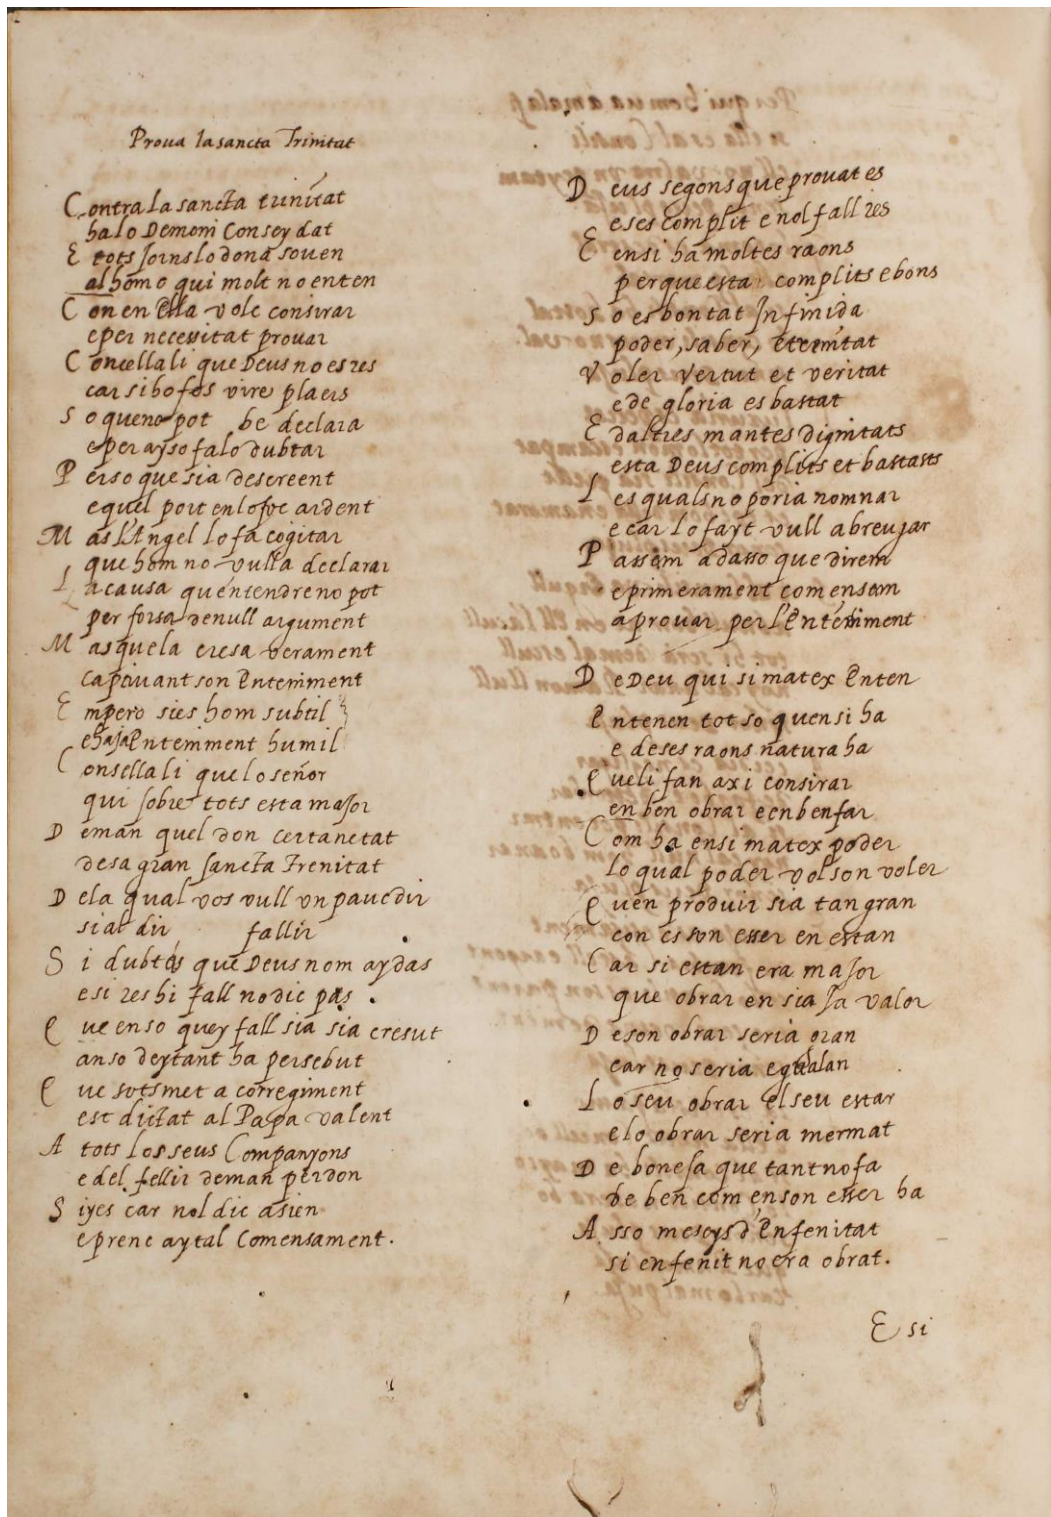 Proua la sancta Trinitat
Contra la sancta trinitat
ha lo Demoni Conseydat
E tots jorns lo dona souen
al homo qui molt no enten
Con en Ella vole consirar
e per necessitat prouar
Concella li que Deus no es res
car si ho fos vire plaers
So que no pot be declara
e per ayso fa lo dubtar
Perso que sia descreent
e quel port en lo foc ardent
Mas l'Angel lo fa cogitar
que hom no vulla declarar
La causa qu'entendre no pot
per forsa de null argument
Mas que la cresa verament
captiuant son Enteniment
Empero sies hom subtil
e haja Enteniment humil
Consella li que lo señor
qui sobre tots esta major
Deman quel don certanetat
de sa gran sancta Trenitat
De la qual vos vull vn pauc dir
si al dir fallir
Si dubtós que Deus nom aydas
e si res hi fall no dic pas.
Que en so quey fall sia sia cresut
anso deytant ha persebut
Que sotsmet a corregiment
est dictat al Papa valent
A tots los seus Companyons
e del fellir deman perdon
Si yes car nol dic asien
e prenc aytal Comensament.
Deus segons que prouat es
e ses complit e nol fall res
E en si ha moltes raons
per que esta complits e bons
So es bontat Infinida
poder, saber, eternitat
Voler Vertut et veritat
e de gloria es bastat
E daltres mantes dignitats
esta Deus complits et bastats
Les quals no poria nomnar
e car lo fayt vull abreujar
Passem adasso que direm
e primerament comensam
a prouar per l'Enteniment
De Deu qui si matex Enten
Entenen tot so quen si ha
e de ses raons natura ha
Que li fan axi consirar
en ben obrar e en ben far
Com ha en si matex poder
lo qual poder vol son voler
Quen produir sia tan gran
con es son esser en estan
Car si estan era major
que obrar en sia ja valor
De son obrar seria gran
car no seria egualan
Lo seu obrar el seu estar
e lo obrar seria mermat
De bonesa que tant no fa
de ben com en son esser ha
Asso meseys d'Enfenitat
si enfenit no era obrat.
E si